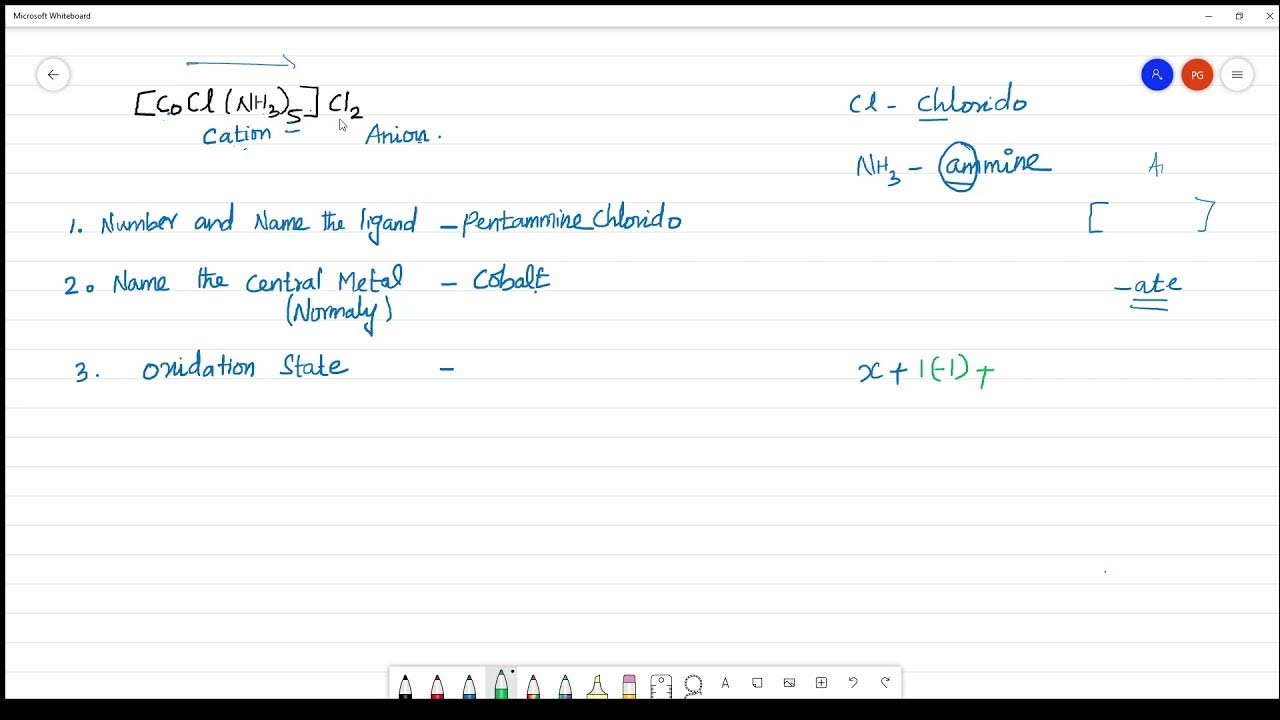 Microsoft Whiteboard
PG
[CoCl(NH3)5]Cl2
Cation Anion.
Cl - Chlorido
NH3 - ammine
1. Number and Name the ligand - Pentammine Chlorido
[ ]
2. Name the Central Metal - Cobalt
(Normaly)
-ate
3. Oxidation State -
x + 1(-1) +
A